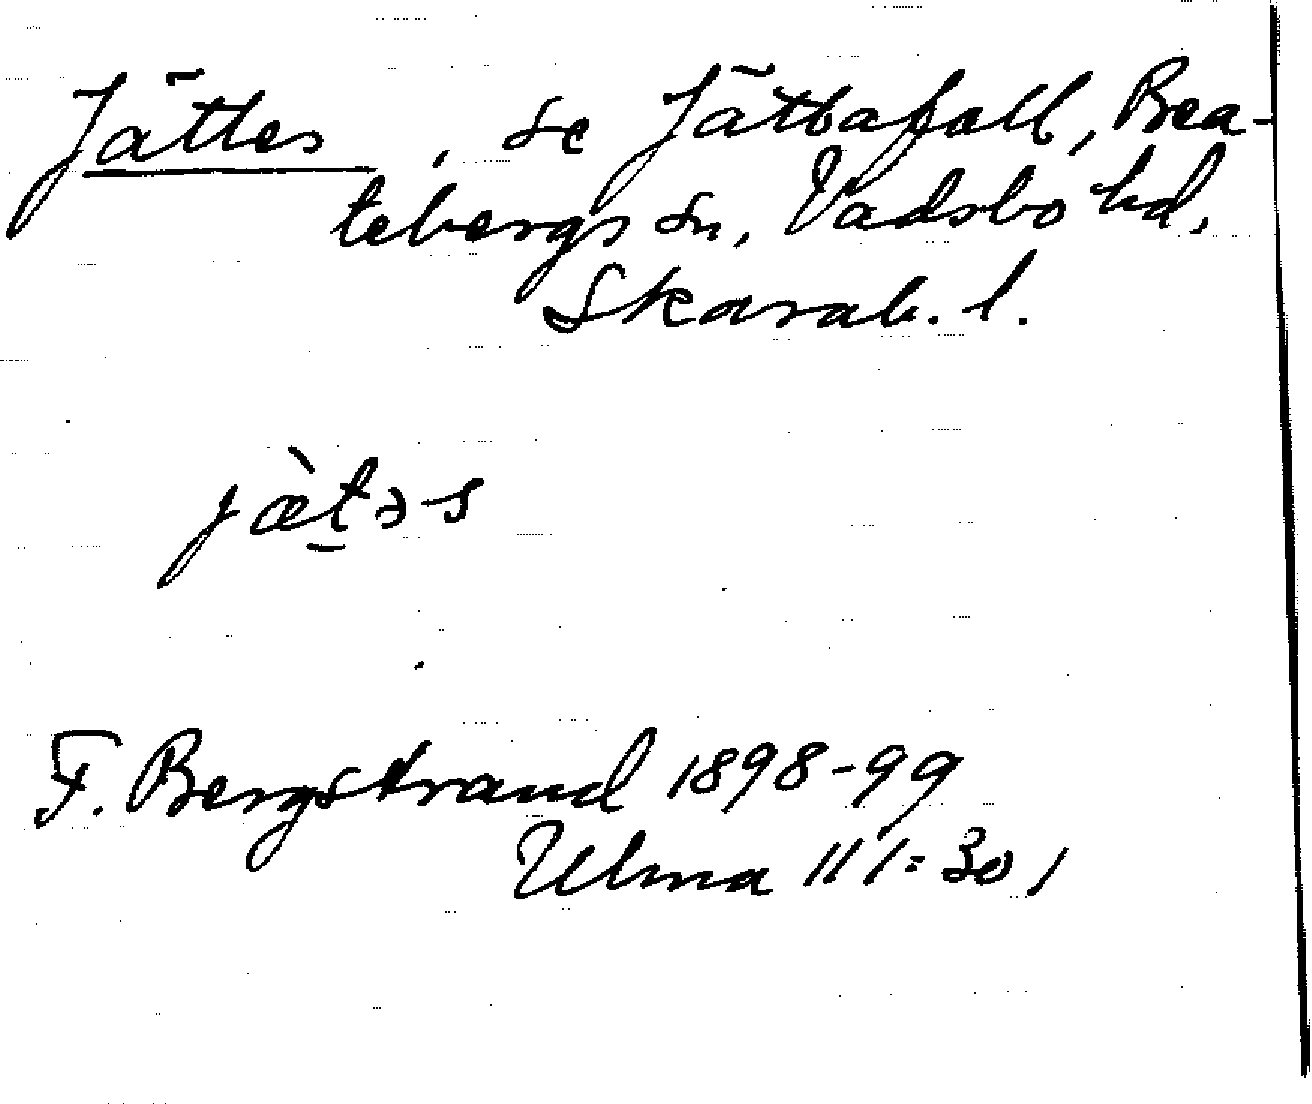 Jättes, se Jättafall, Bea-
tebergs sn, Vadsbo hd,
Skarab. l.
jæ̀t̠ə-s
F. Bergstrand 1898-99
Ulma 111:301